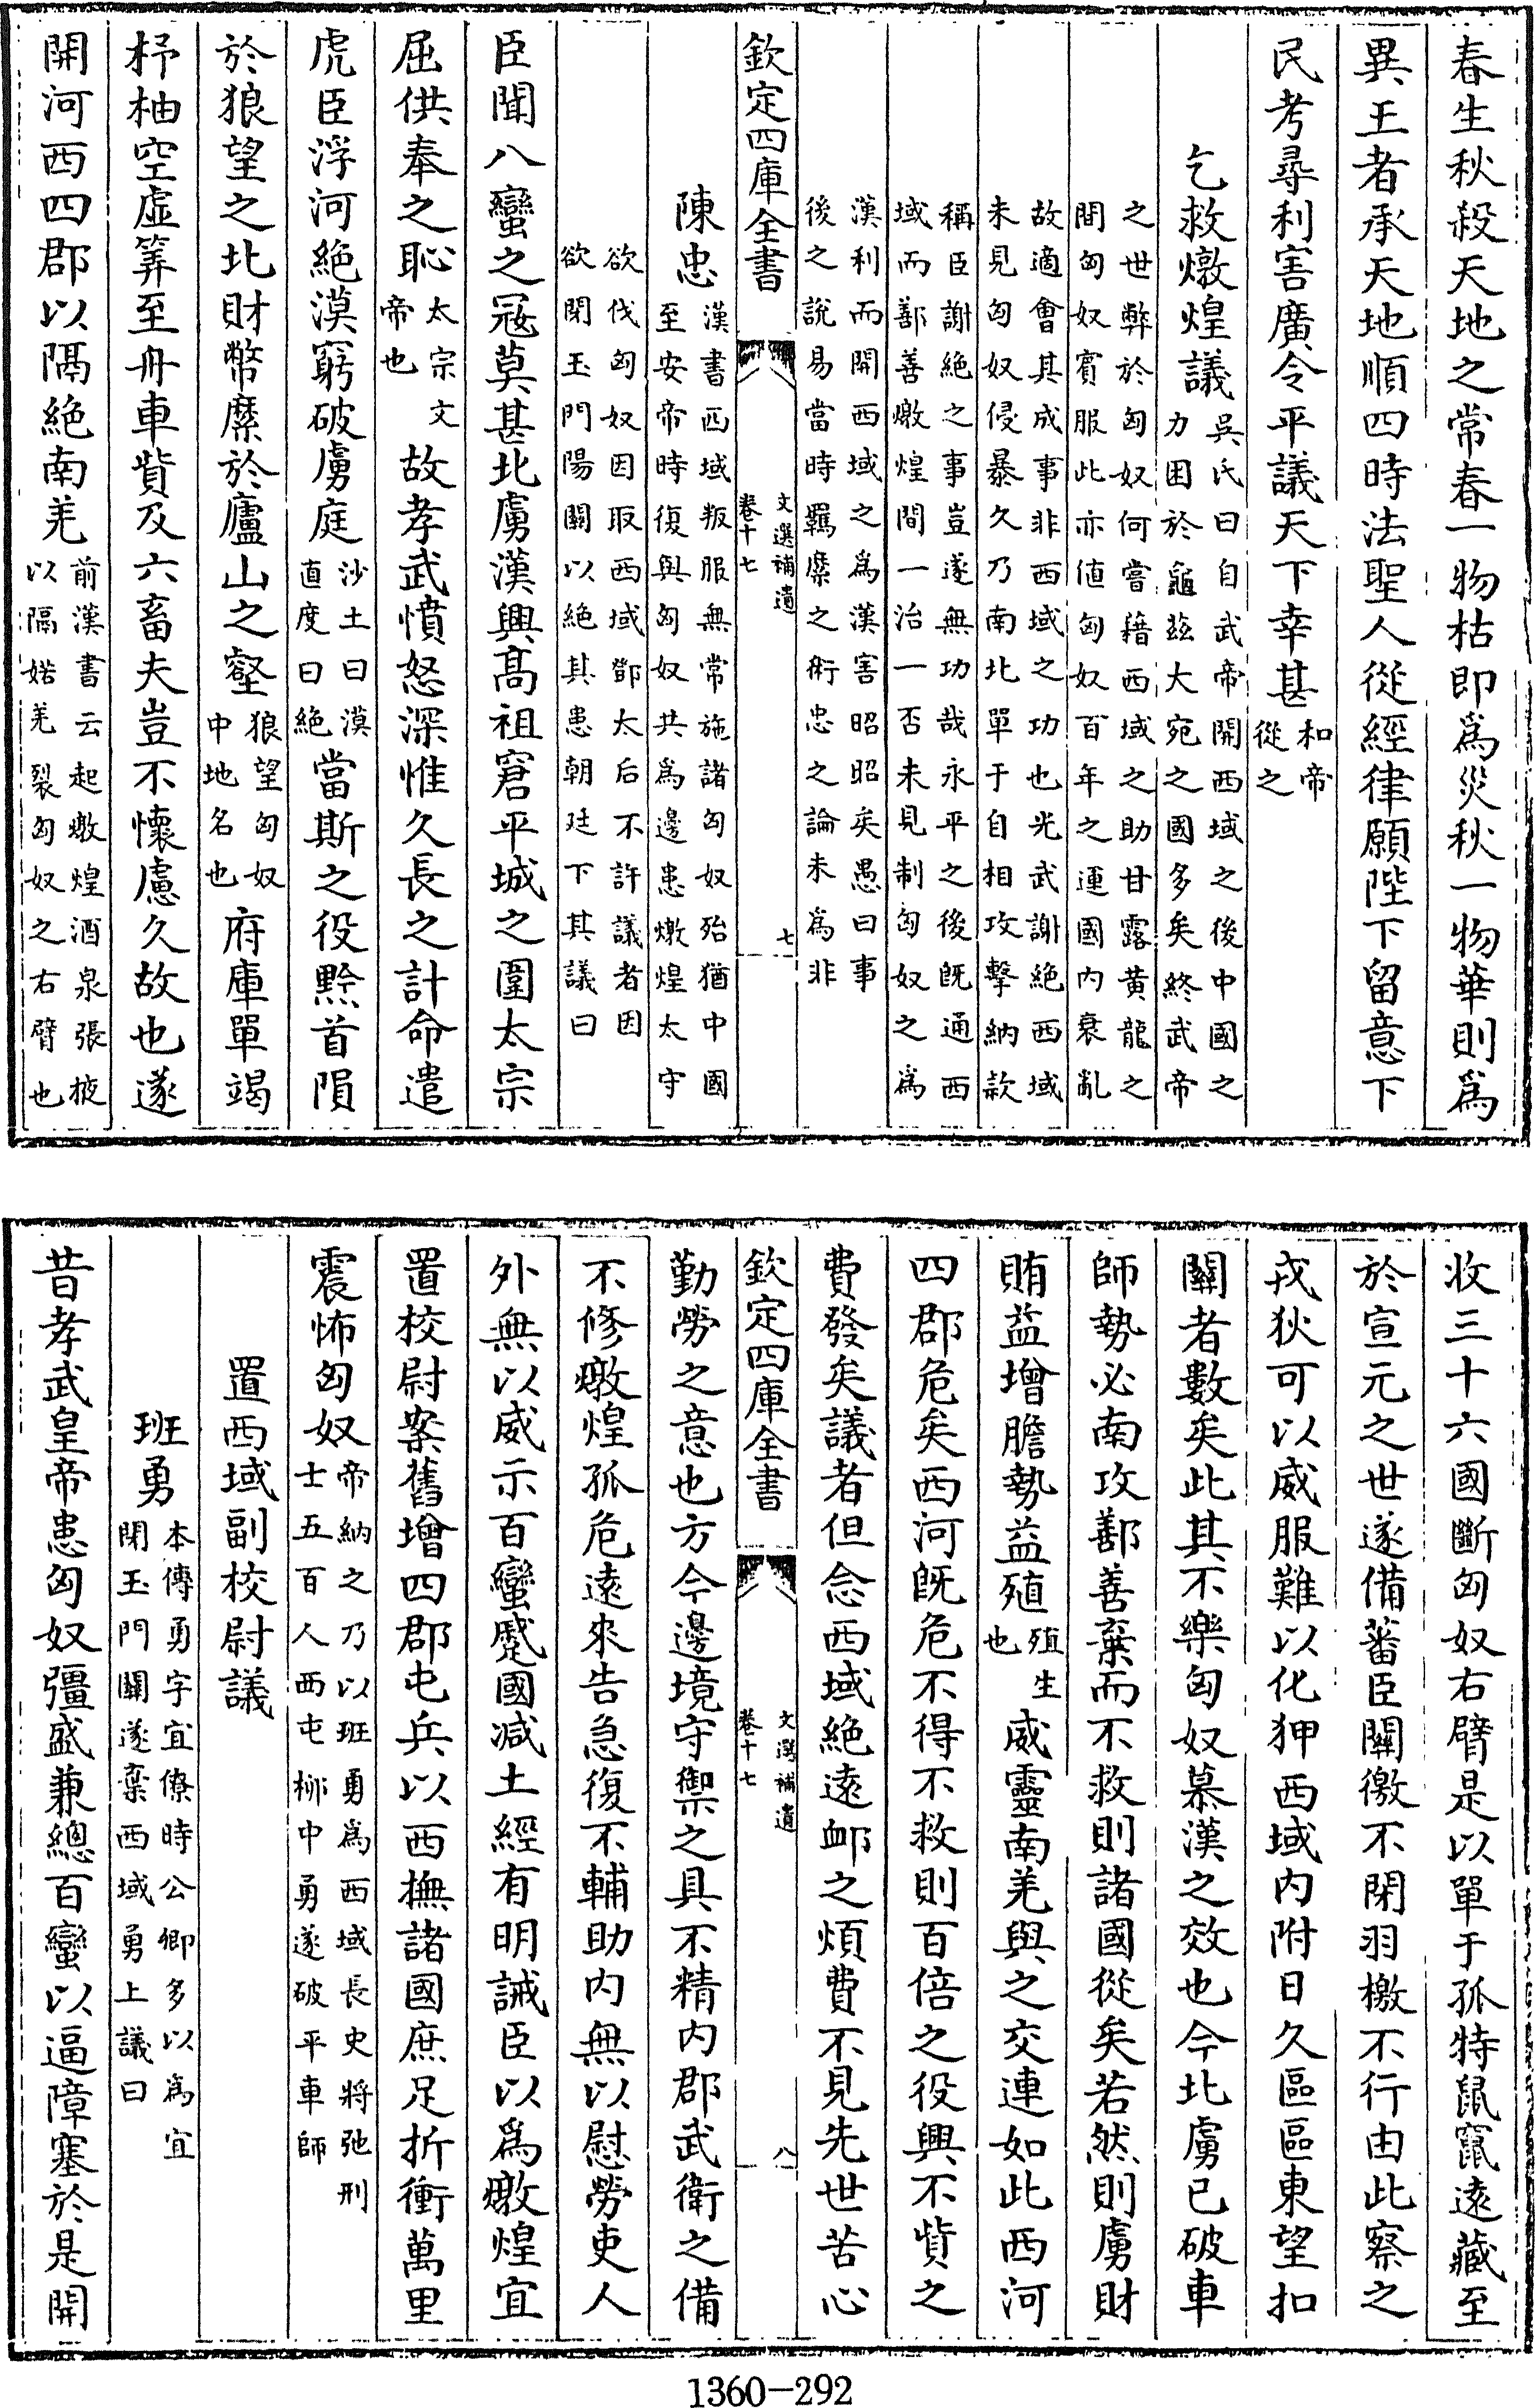 春生秋殺天地之常春一物枯即為災秋一物華則為
異王者承天地順四時法聖人從經律願陛下留意下
民考尋利害廣令平議天下幸甚和帝從之
乞救燉煌議吳氏曰自武帝開西域之後中國之力困於龜茲大宛之國多矣終武帝
之世弊於匈奴何嘗藉西域之助甘露黄龍之間匈奴賓服此亦值匈奴百年之運國內衰亂
故適會其成事非西域之功也光武謝絶西域未見匈奴侵暴久乃南北單于自相攻擊納款
稱臣謝絶之事豈遂無功哉永平之後既通西域而鄯善燉煌間一治一否未見制匈奴之為
漢利而開西域之為漢害昭昭矣愚曰事後之說易當時羈縻之術忠之論未為非
欽定四庫全書 文選補遺 卷十七 七
陳忠漢書西域叛服無常施諸匈奴殆猶中國至安帝時復與匈奴共為邊患燉煌太守
欲伐匈奴因取西域鄧太后不許議者因欲閉玉門陽關以絶其患朝廷下其議曰
臣聞八蠻之冦莫甚北虜漢興髙祖窘平城之圍太宗
屈供奉之恥太宗文帝也故孝武憤怒深惟久長之計命遣
虎臣浮河絶漠窮破虜庭沙土曰漠直度曰絶當斯之役黔首隕
於狼望之北財幣縻於廬山之壑狼望匈奴中地名也府庫單竭
杼柚空虛筭至舟車貲及六畜夫豈不懷慮久故也遂
開河西四郡以隔絶南羌前漢書云起燉煌酒泉張掖以隔婼羌裂匈奴之右臂也
收三十六國斷匈奴右臂是以單于孤特鼠竄遠藏至
於宣元之世遂備蕃臣關徼不閉羽檄不行由此察之
戎狄可以威服難以化狎西域內附日久區區東望扣
關者數矣此其不樂匈奴慕漢之效也今北虜已破車
師勢必南攻鄯善棄而不救則諸國從矣若然則虜財
賄益增膽勢益殖殖生也威靈南羌與之交連如此西河
四郡危矣西河既危不得不救則百倍之役興不貲之
費發矣議者但念西域絶遠䘏之煩費不見先世苦心
欽定四庫全書 文選補遺 卷十七 八
勤勞之意也方今邊境守禦之具不精內郡武衛之備
不修燉煌孤危遠來告急復不輔助內無以慰勞吏人
外無以威示百蠻蹙國減土經有明誡臣以為燉煌宜
置校尉案舊增四郡屯兵以西撫諸國庶足折衝萬里
震怖匈奴帝納之乃以班勇為西域長史將弛刑士五百人西屯栁中勇遂破平車師
置西域副校尉議
班勇本傳勇字宜僚時公卿多以為宜閉玉門關遂棄西域勇上議曰
昔孝武皇帝患匈奴彊盛兼總百蠻以逼障塞於是開
1360-292